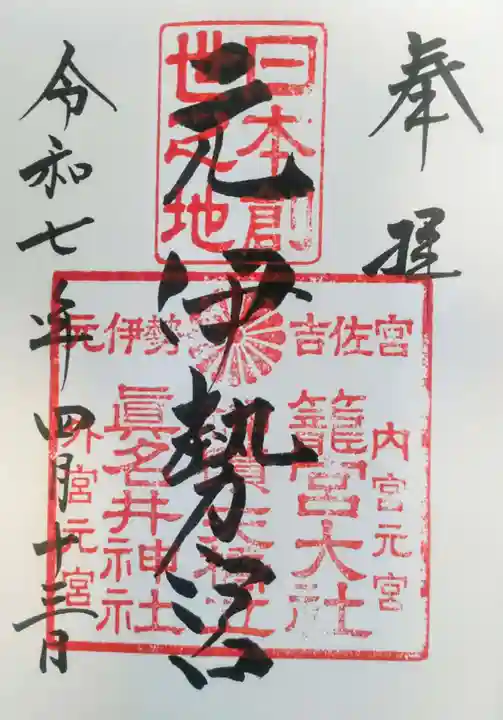 奉拝
元伊勢
令和七年四月十三日
日本創
世之地
元伊勢 吉佐宮
内宮元宮
籠宮大社
眞名井神社
外宮元宮